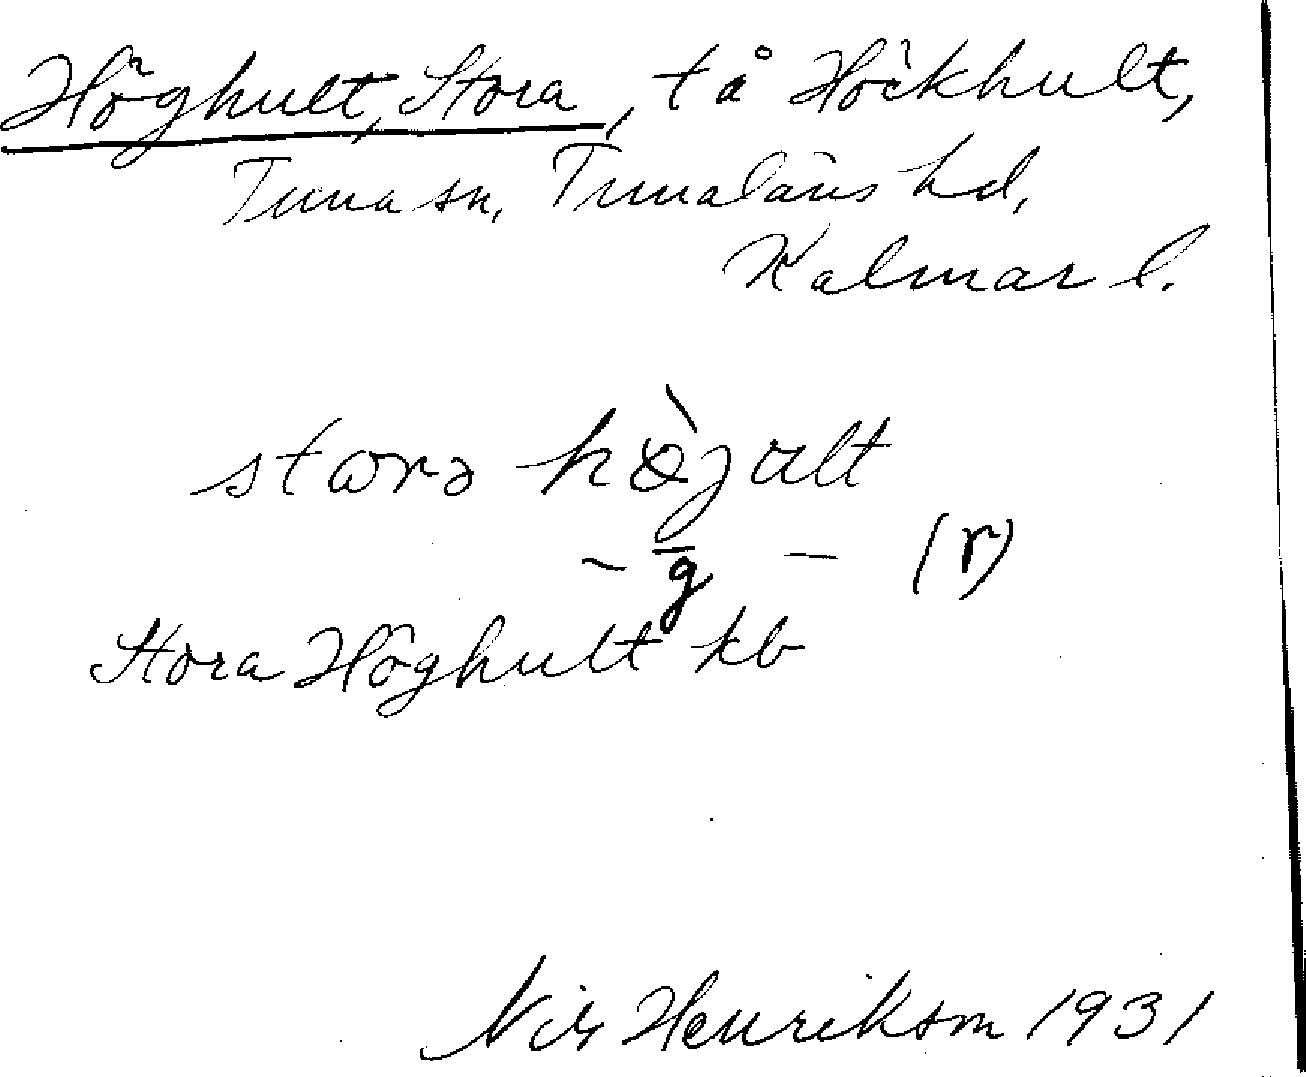 Höghult, Stora, tå Höckhult,
Tuna sn, Tunaläns hd,
Kalmar l.
storə hø̀jult
– g – (r)
Stora Höghult kb
Nils Henrikson 1931